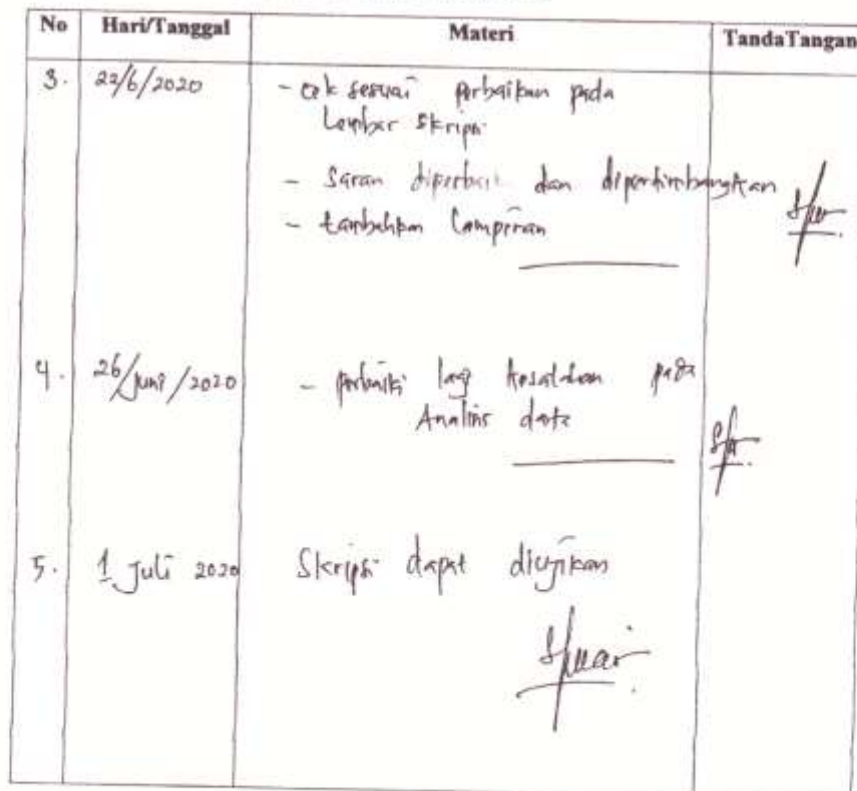 No Hari/Tanggal Materi TandaTangan
3. 22/6/2020 - cek sesuai perbaikan pada
Lembar Skripsi
- Saran diperbaiki dan dipertimbangkan
- tambahkan Lampiran
4. 26/Juni/2020 - perbaiki lagi kesalahan pada
Analisis data
5. 1 Juli 2020 Skripsi dapat diujikan